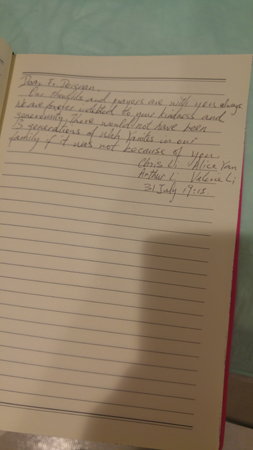 Dear Fr. Deignan.
Our thoughts and prayers are with you always
We are forever indebted to your kindness and
generosity, there would not have been
3 generations of Wah Yanites in our
family if it was not because of you
Chris Li Alice Yan
Arthur Li Valerie Li
31 July 17:15